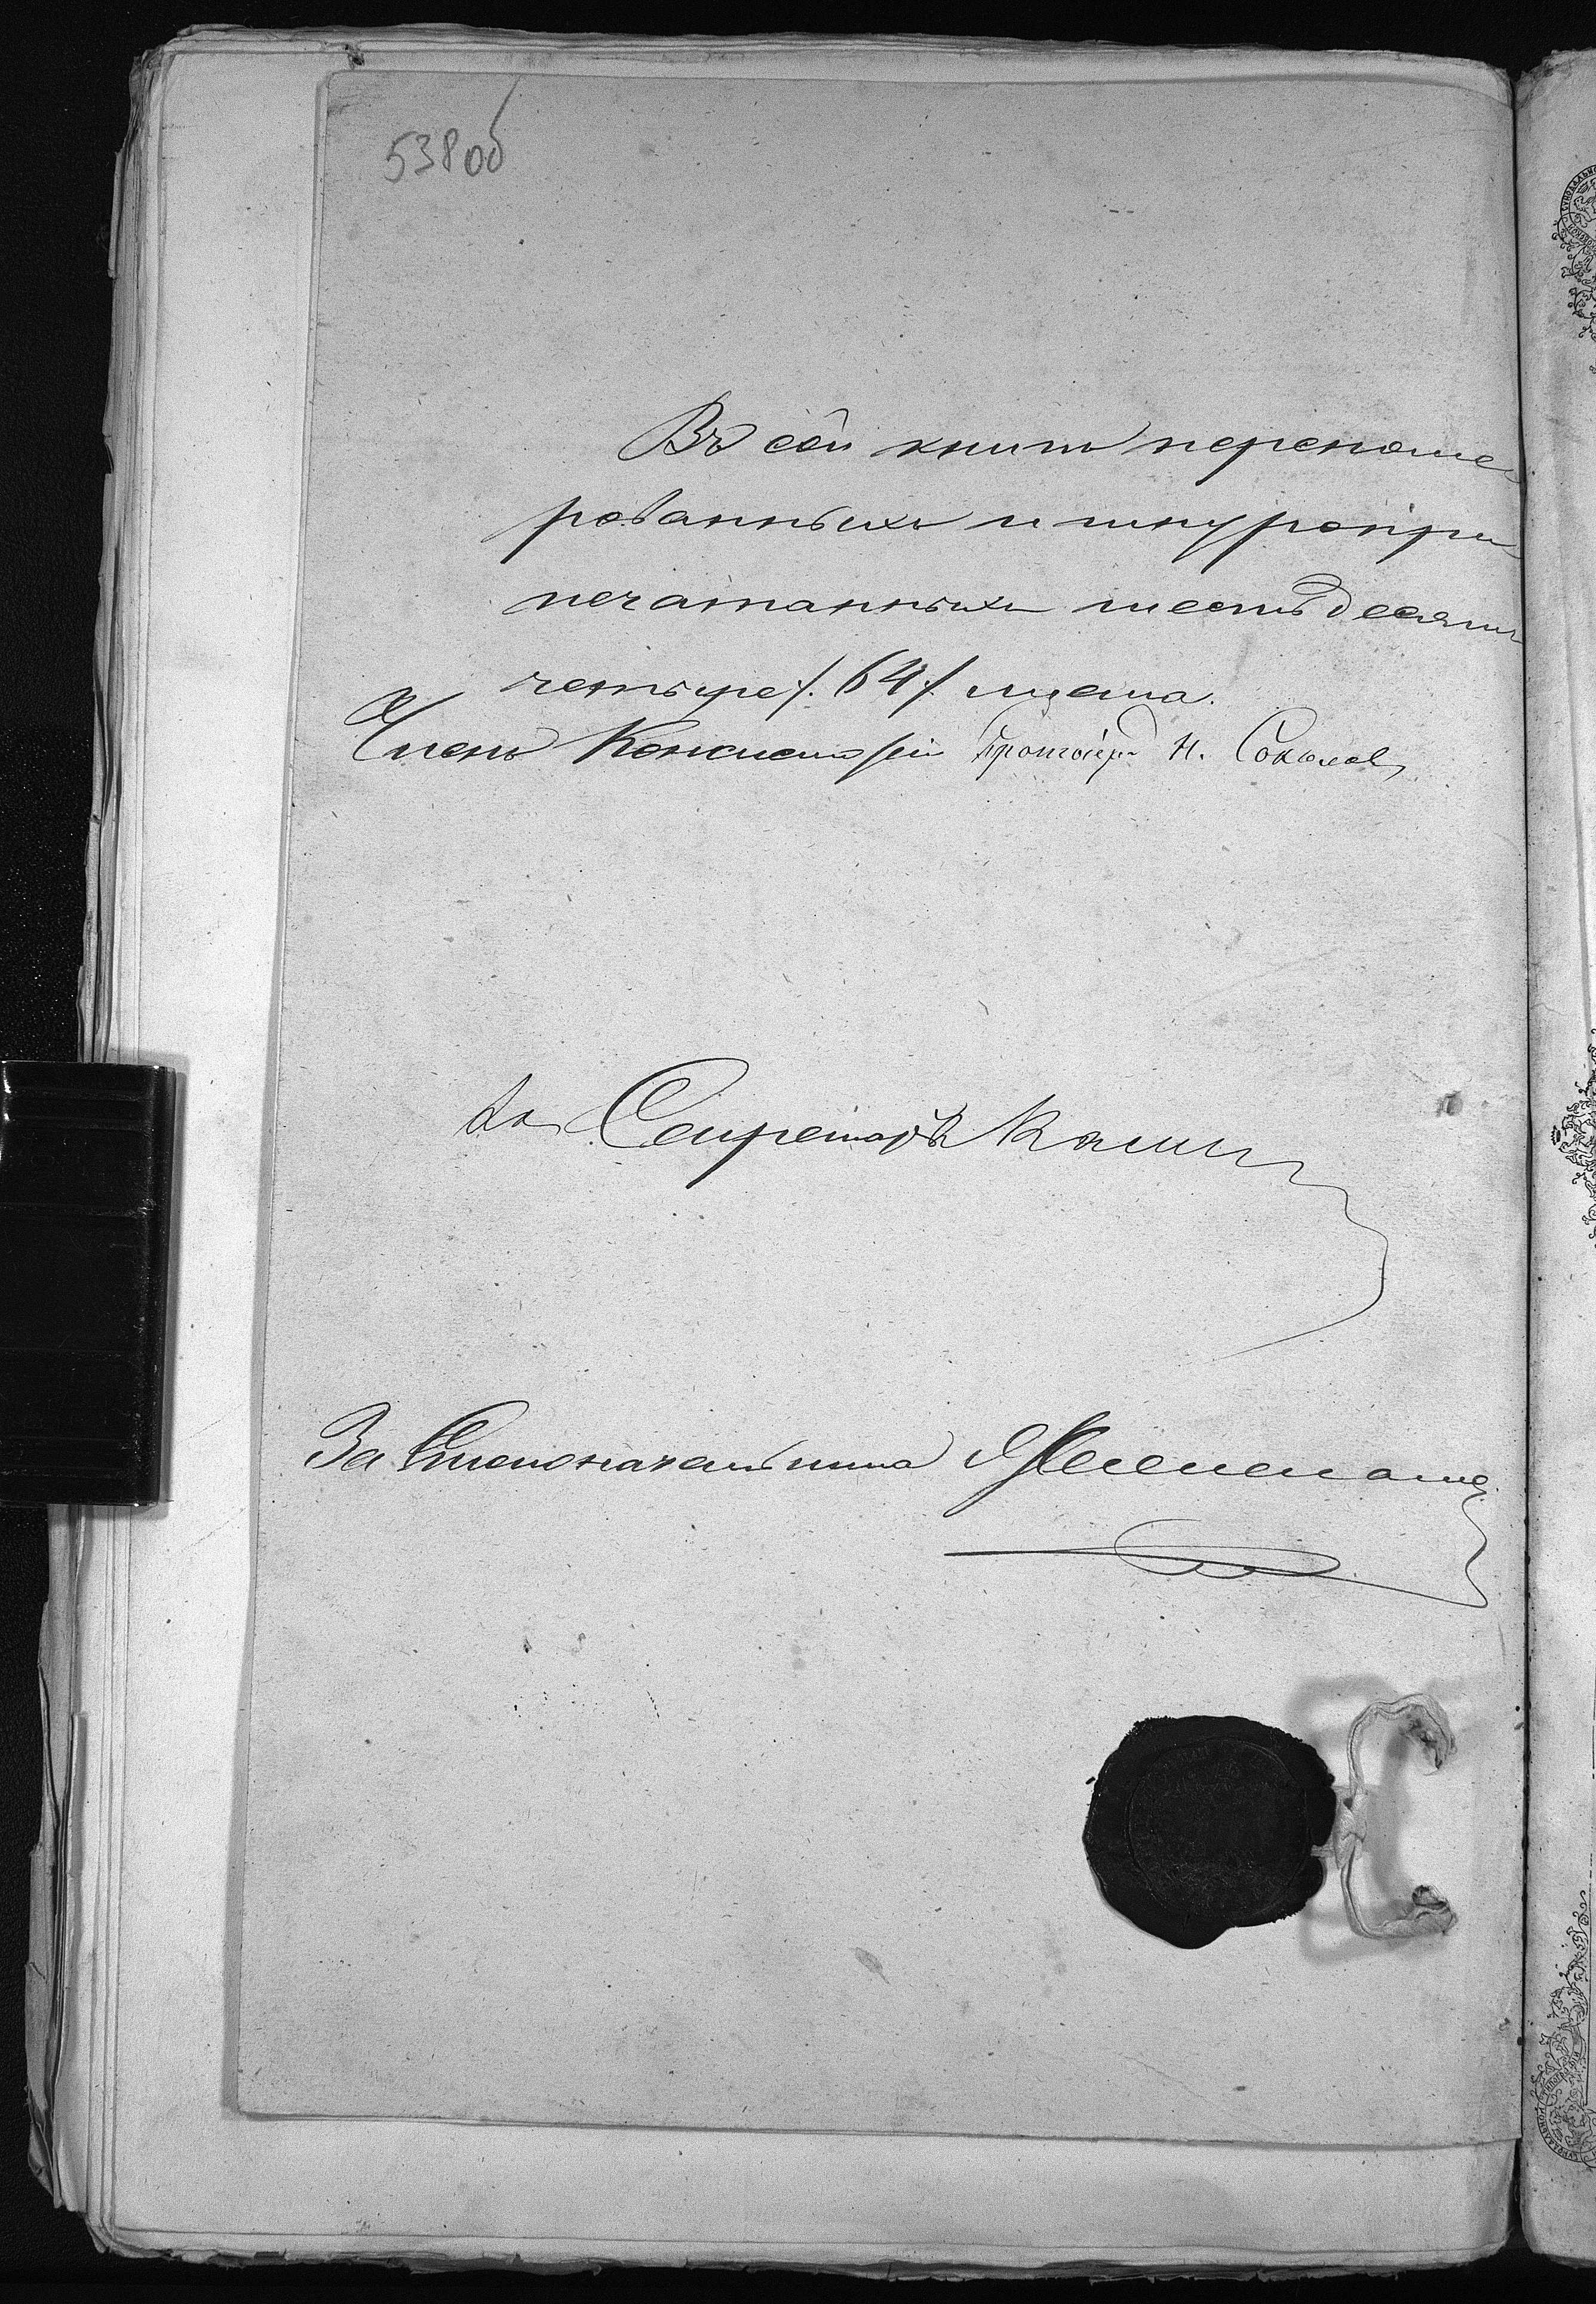 538 об
Въ сей книгѣ перономе
рованныхъ и шнуропри
печатанныхъ шестьдесятъ
четыре /. 64 ./ листа.
Членъ Консисторіи Протоіерей Н. Соколов
Секретарь
За Столоначальника